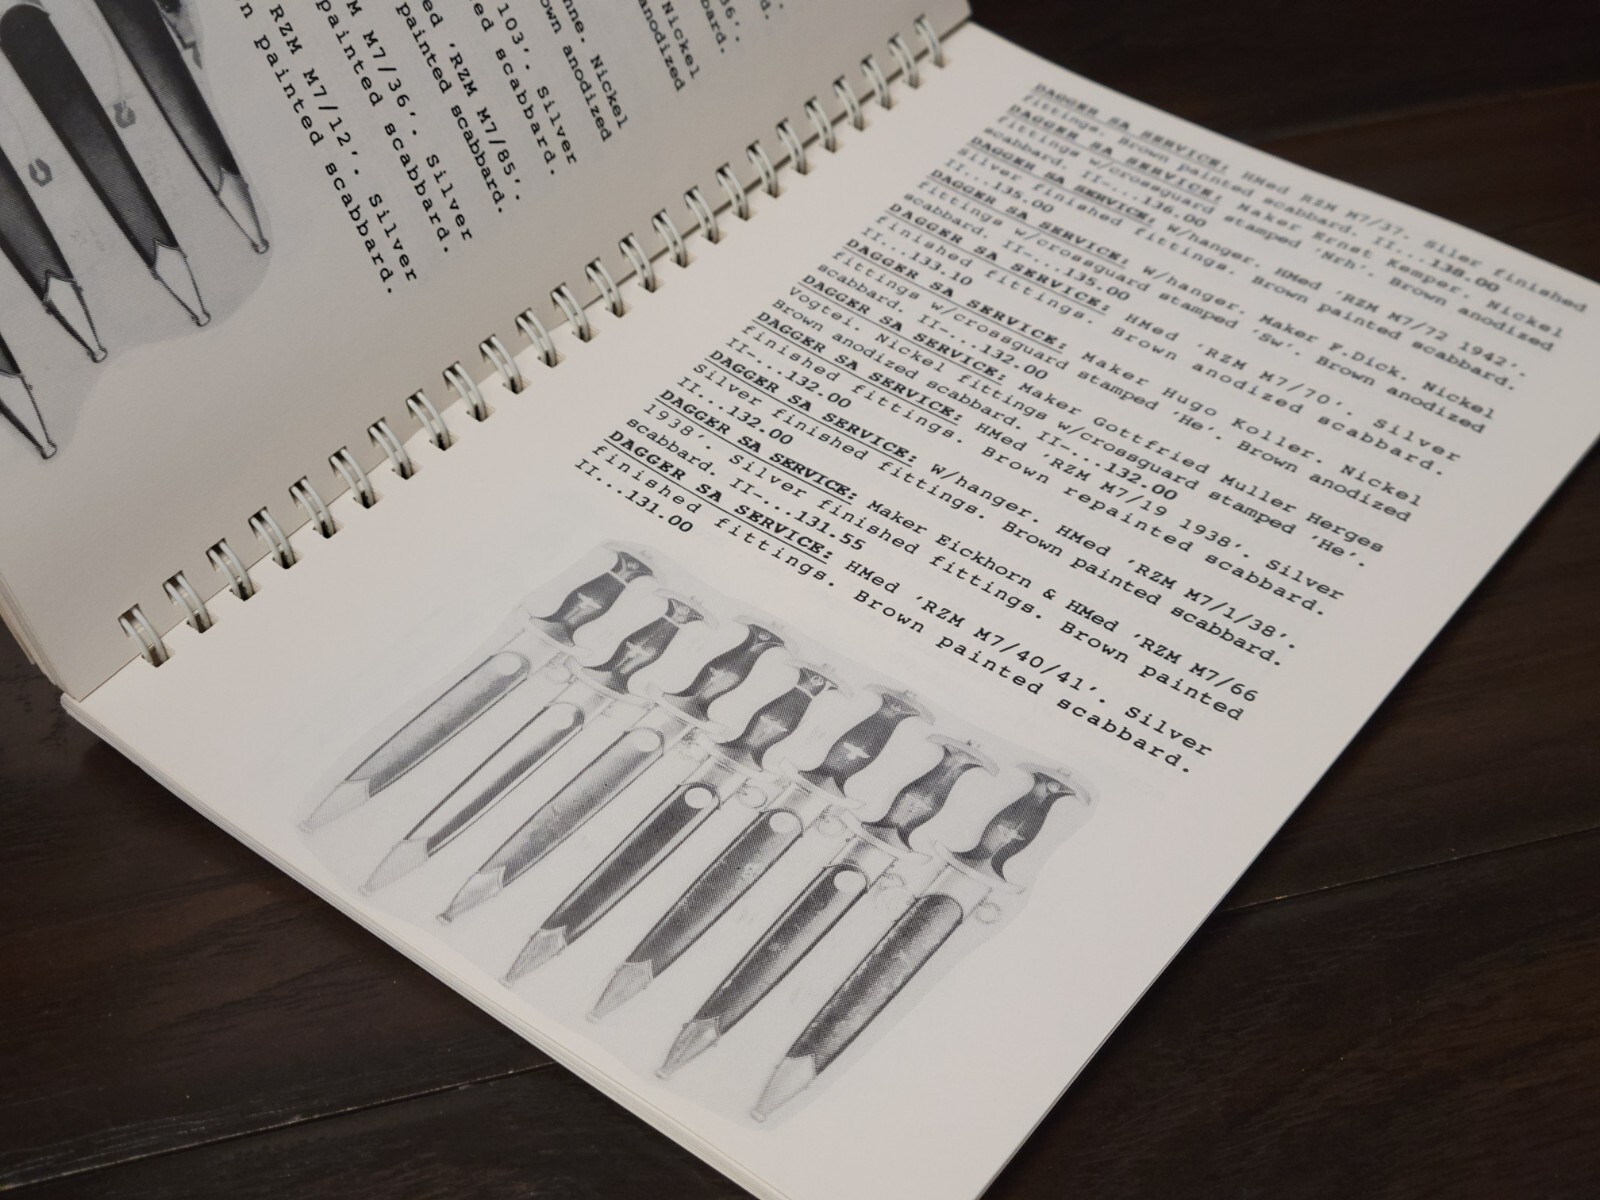 36'.
bbard.
Nickel
anodized
nne. Nickel
own anodized
103'. Silver
ed scabbard.
ed 'RZM M7/85'.
painted scabbard.
M M7/36'. Silver
painted scabbard.
RZM M7/12'. Silver
n painted scabbard.
DAGGER SA SERVICE: HMed RZM M7/37. Siler finished
fittings. Brown painted scabbard. II...138.00
DAGGER SA SERVICE: Maker Ernst Kemper. Nickel
fittings w/crossguard stamped 'Nrh'. Brown anodized
scabbard. II-...136.00
DAGGER SA SERVICE: W/hanger. HMed 'RZM M7/72 1942'.
Silver finished fittings. Brown painted scabbard.
II...135.00
DAGGER SA SERVICE: W/hanger. Maker F.Dick. Nickel
fittings w/crossguard stamped 'Sw'. Brown anodized
scabbard. II-...135.00
DAGGER SA SERVICE: HMed 'RZM M7/70'. Silver
finished fittings. Brown anodized scabbard.
II...133.10
DAGGER SA SERVICE: Maker Hugo Koller. Nickel
fittings w/crossguard stamped 'He'. Brown anodized
scabbard. II-...132.00
DAGGER SA SERVICE: Maker Gottfried Muller Herges
Vogtei. Nickel fittings w/crossguard stamped 'He'.
Brown anodized scabbard. II-...132.00
DAGGER SA SERVICE: HMed 'RZM M7/19 1938'. Silver
finished fittings. Brown repainted scabbard.
II-...132.00
DAGGER SA SERVICE: W/hanger. HMed 'RZM M7/1/38'.
Silver finished fittings. Brown painted scabbard.
II...132.00
DAGGER SA SERVICE: Maker Eickhorn & HMed 'RZM M7/66
1938'. Silver finished fittings. Brown painted
scabbard. II-...131.55
DAGGER SA SERVICE: HMed 'RZM M7/40/41'. Silver
finished fittings. Brown painted scabbard.
II...131.00